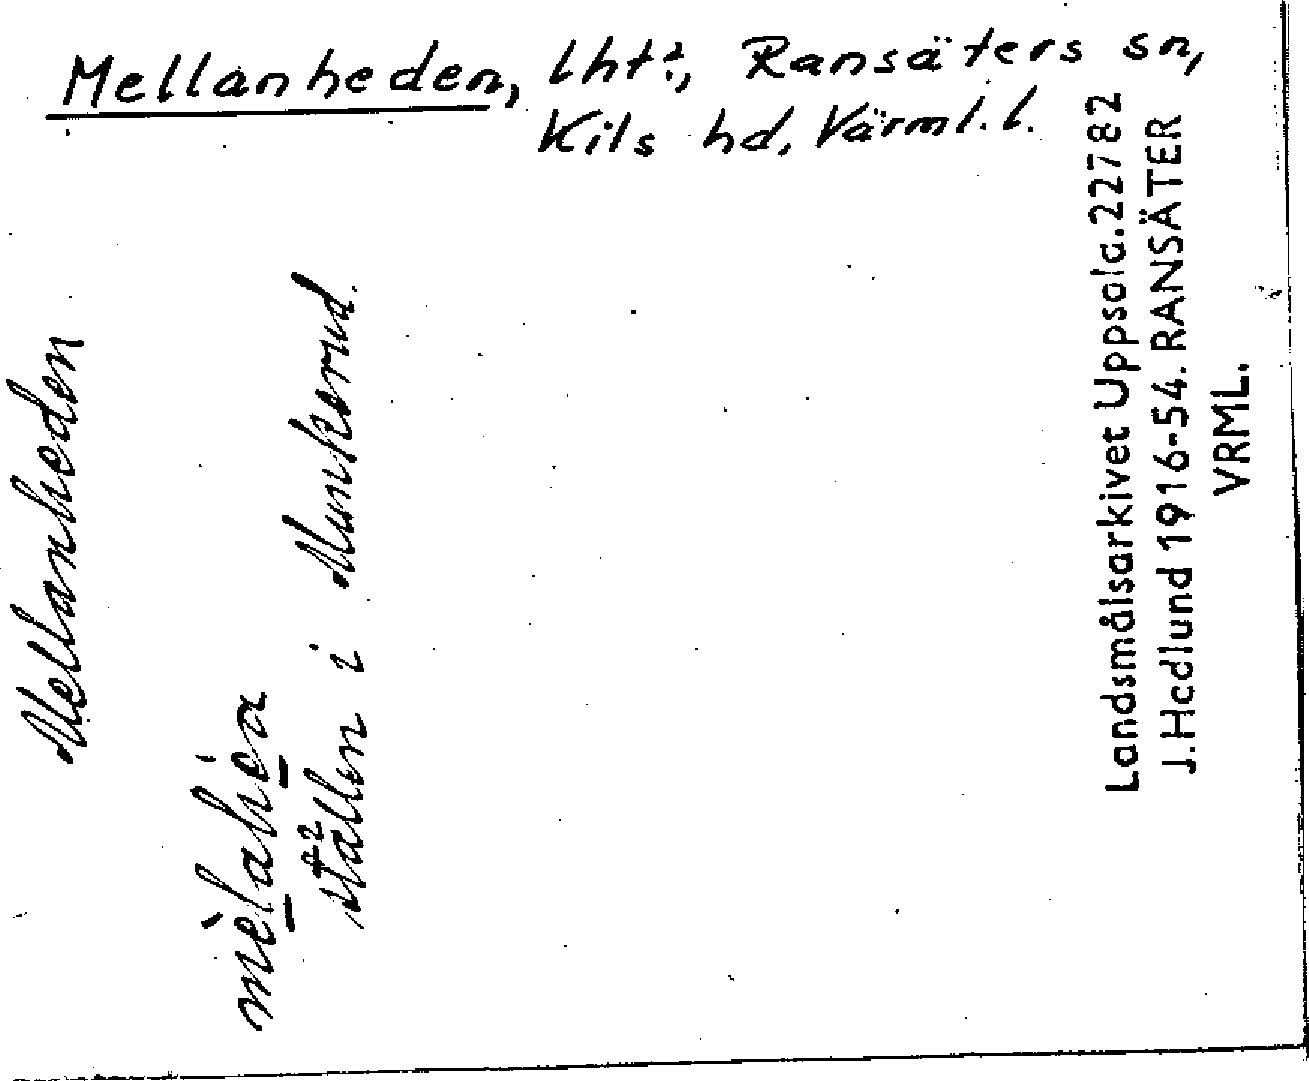 Mellanheden, lht?, Ransäters sn,
Kils hd, Värml. l.
Mellanheden
mèlahéa
ställen i Munkerud.
Landsmålsarkivet Uppsala. 22782
J. Hedlund 1916-54. RANSÄTER
VRML.